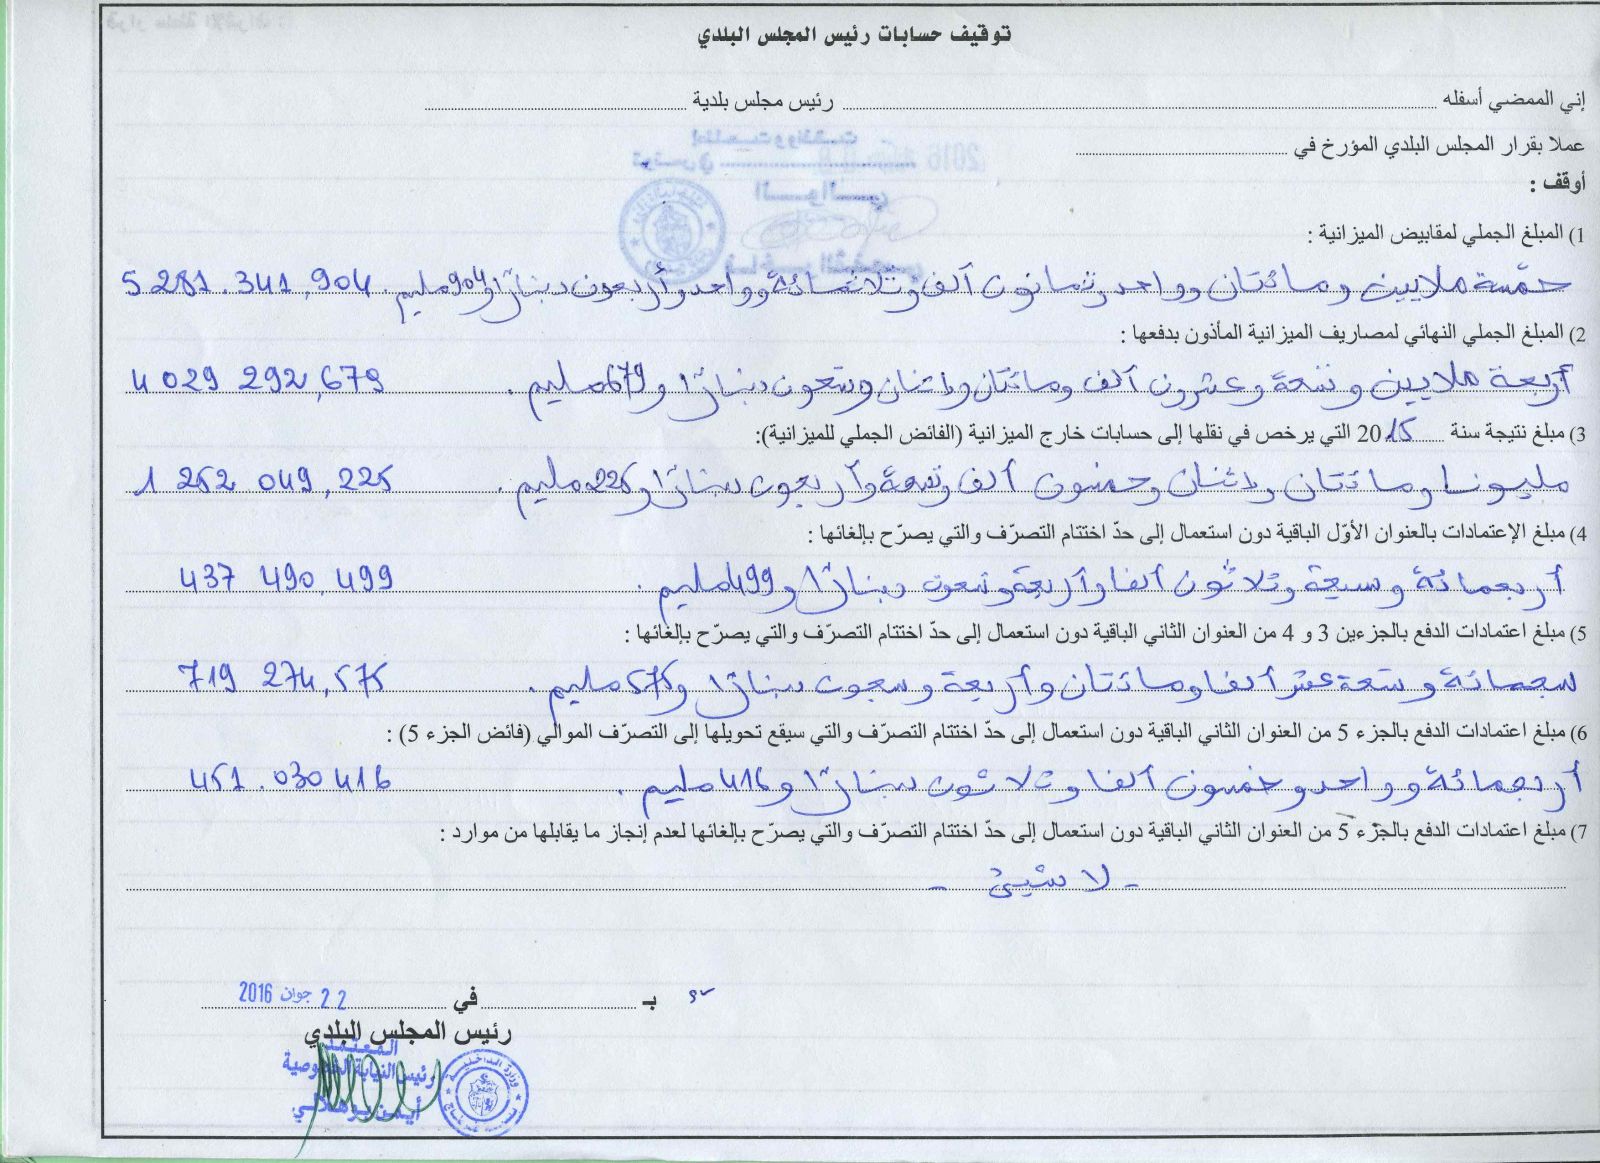 توقيف حسابات رئيس المجلس البلدي
إني الممضي أسفله ............ رئيس مجلس بلدية ............
عملا بقرار المجلس البلدي المؤرخ في ............
أوقف :
1) المبلغ الجملي لمقابيض الميزانية :
خمسة ملايين ومائتان وواحد وثمانون ألف وثلاثمائة وواحد وأربعون دينارا و904 مليم. 5 281.341,904
2) المبلغ الجملي النهائي لمصاريف الميزانية المأذون بدفعها :
أربعة ملايين وتسعة وعشرون ألف ومائتان واثنان وتسعون دينارا و679 مليم. 4 029 292,679
3) مبلغ نتيجة سنة 2015 التي يرخص في نقلها إلى حسابات خارج الميزانية (الفائض الجملي للميزانية):
مليونا ومائتان واثنان وخمسون ألف وتسعة وأربعون دينارا و225 مليم. 1 252 049,225
4) مبلغ الإعتمادات بالعنوان الأوّل الباقية دون استعمال إلى حدّ اختتام التصرّف والتي يصرّح بإلغائها :
أربعمائة وسبعة وثلاثون ألفا وأربعة وتسعون دينارا و499 مليم. 437 490,499
5) مبلغ اعتمادات الدفع بالجزءين 3 و 4 من العنوان الثاني الباقية دون استعمال إلى حدّ اختتام التصرّف والتي يصرّح بإلغائها :
سبعمائة وتسعة عشر ألفا ومائتان وأربعة وسبعون دينارا و575 مليم. 719 274,575
6) مبلغ اعتمادات الدفع بالجزء 5 من العنوان الثاني الباقية دون استعمال إلى حدّ اختتام التصرّف والتي سيقع تحويلها إلى التصرّف الموالي (فائض الجزء 5) :
أربعمائة وواحد وخمسون ألفا وثلاثون دينارا و416 مليم. 451.030 416
7) مبلغ اعتمادات الدفع بالجزء 5 من العنوان الثاني الباقية دون استعمال إلى حدّ اختتام التصرّف والتي يصرّح بإلغائها لعدم إنجاز ما يقابلها من موارد :
- لا شيئ -
بـ ............ في 22 جوان 2016
رئيس المجلس البلدي
المعتمد
رئيس النيابة الخصوصية
أيمن بوهلالي
وزارة الداخلية